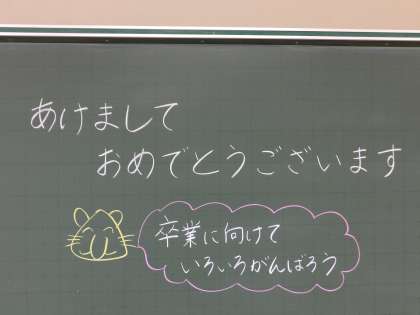 あけまして
おめでとうございます
卒業に向けて
いろいろがんばろう